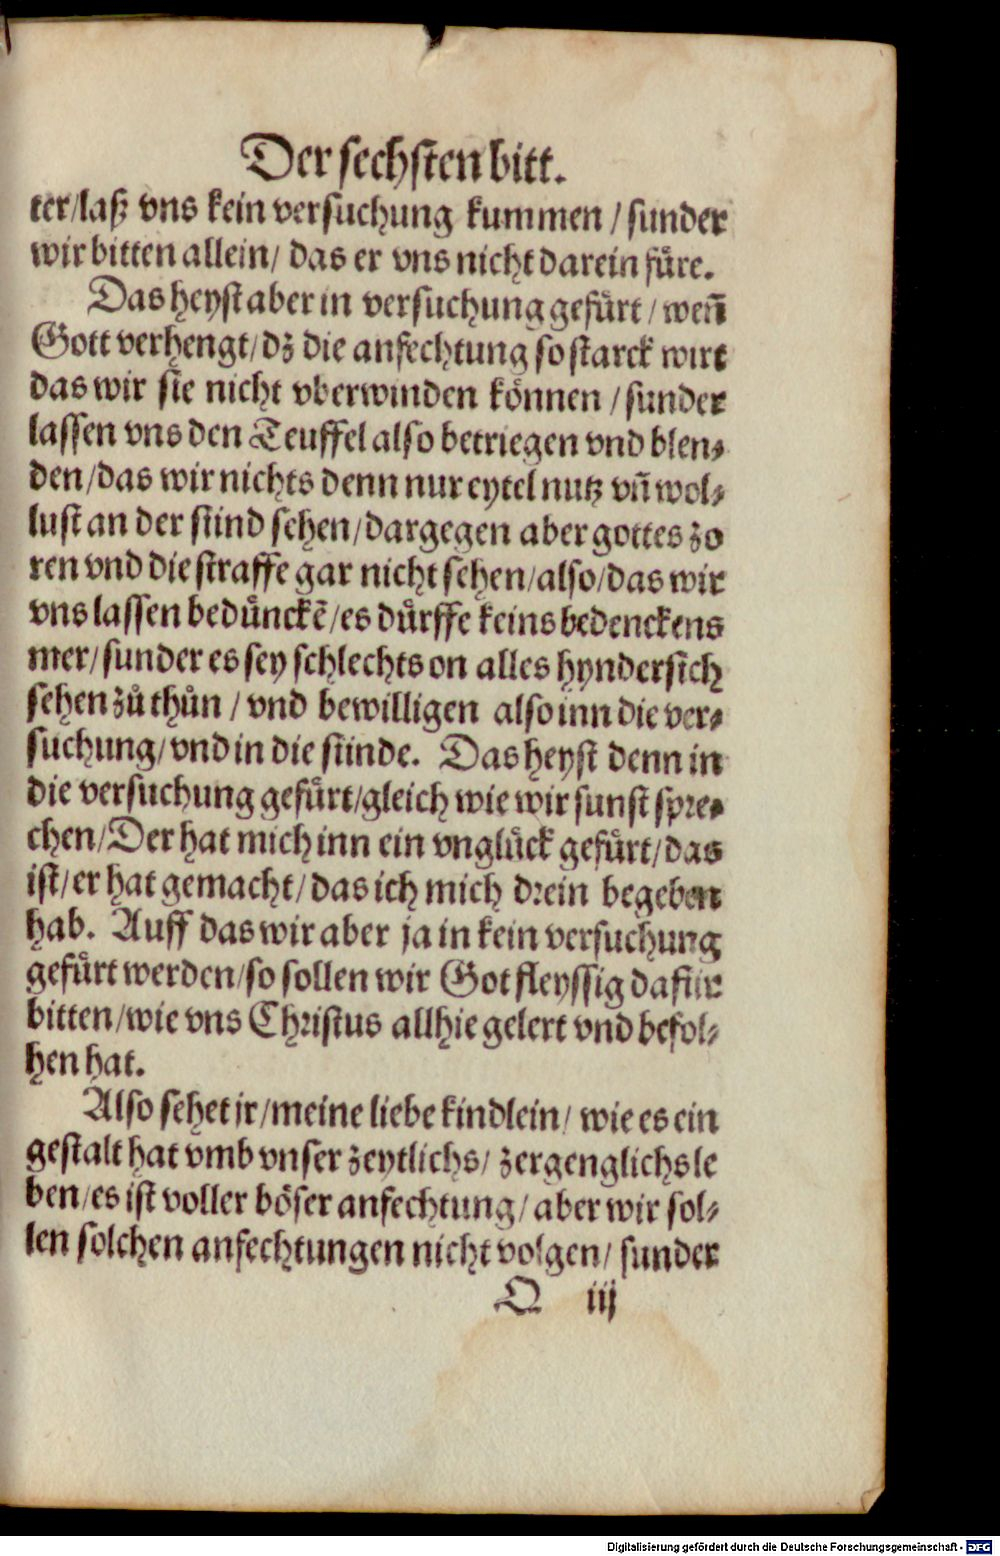 Der sechsten bitt.
ter/laß vns kein versuchung kummen / sunder
wir bitten allein/ das er vns nicht darein fuͤre.
Das heyst aber in versuchung gefuͤrt / weñ
Gott verhengt/dz die anfechtung so starck wirt
das wir sie nicht vberwinden koͤnnen / sunder
lassen vns den Teuffel also betriegen vnd blen-
den/das wir nichts denn nur eytel nutz vñ wol-
lust an der sünd sehen/dargegen aber gottes zo
ren vnd die straffe gar nicht sehen/also/das wir
vns lassen beduͤnckẽ/es duͤrffe keins bedenckens
mer/sunder es sey schlechts on alles hyndersich
sehen zů thůn / vnd bewilligen also inn die ver-
suchung/vnd in die sünde. Das heyst denn in
die versuchung gefuͤrt/gleich wie wir sunst spre-
chen/Der hat mich inn ein vngluͤck gefuͤrt/das
ist/er hat gemacht/das ich mich drein begeben
hab. Auff das wir aber ja in kein versuchung
gefuͤrt werden/so sollen wir Got fleyssig dafür
bitten/wie vns Christus allhie gelert vnd befol-
hen hat.
Also sehet jr/meine liebe kindlein/ wie es ein
gestalt hat vmb vnser zeytlichs/ zergenglichs le
ben/es ist voller boͤser anfechtung/aber wir sol-
len solchen anfechtungen nicht volgen/ sunder
Q iij
Digitalisierung gefördert durch die Deutsche Forschungsgemeinschaft - DFG